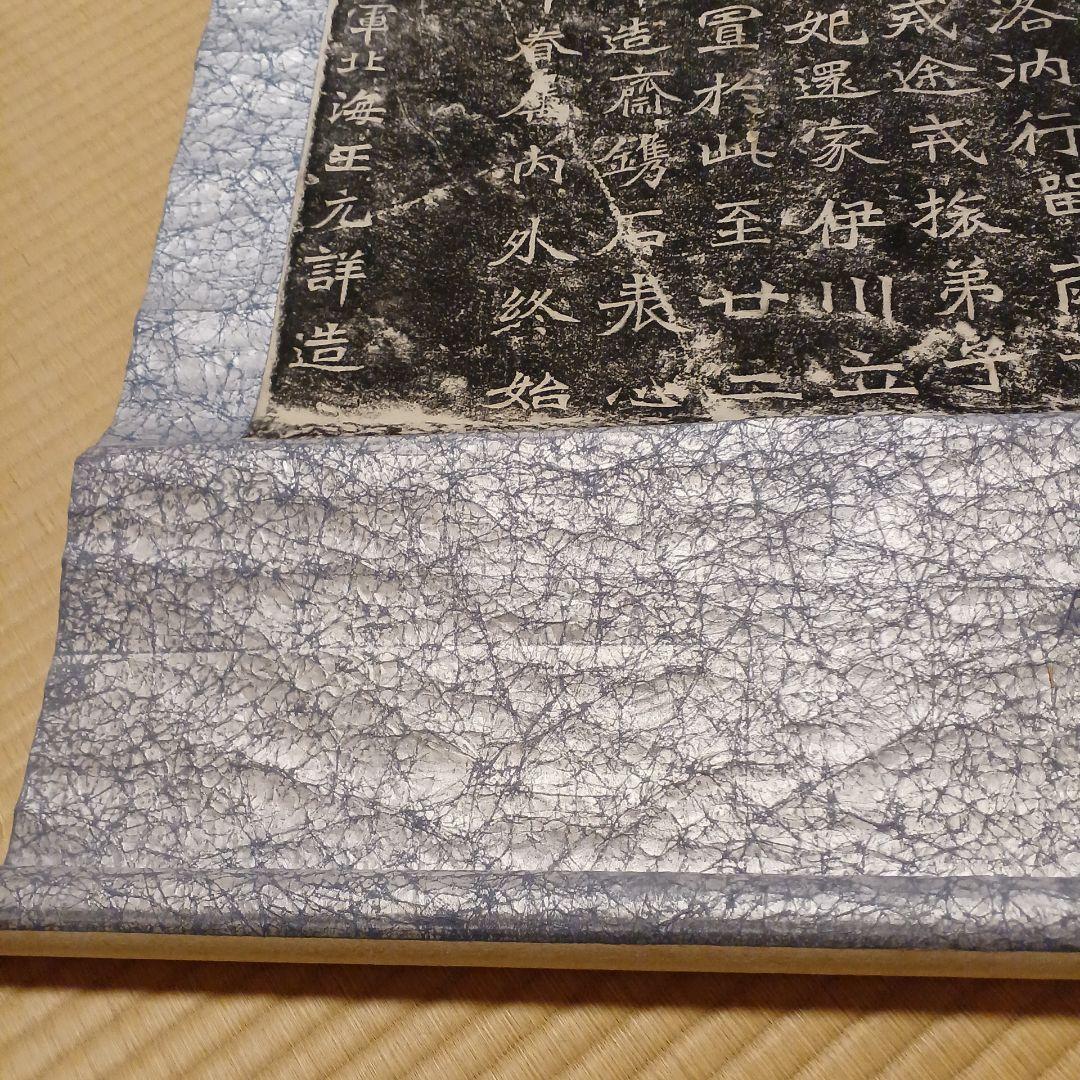 洛汭行留
戎途戎旅弟子
妃還家伊川立
置於此至廿二
造齋鐫石表心
眷屬內外終始
軍北海王元詳造